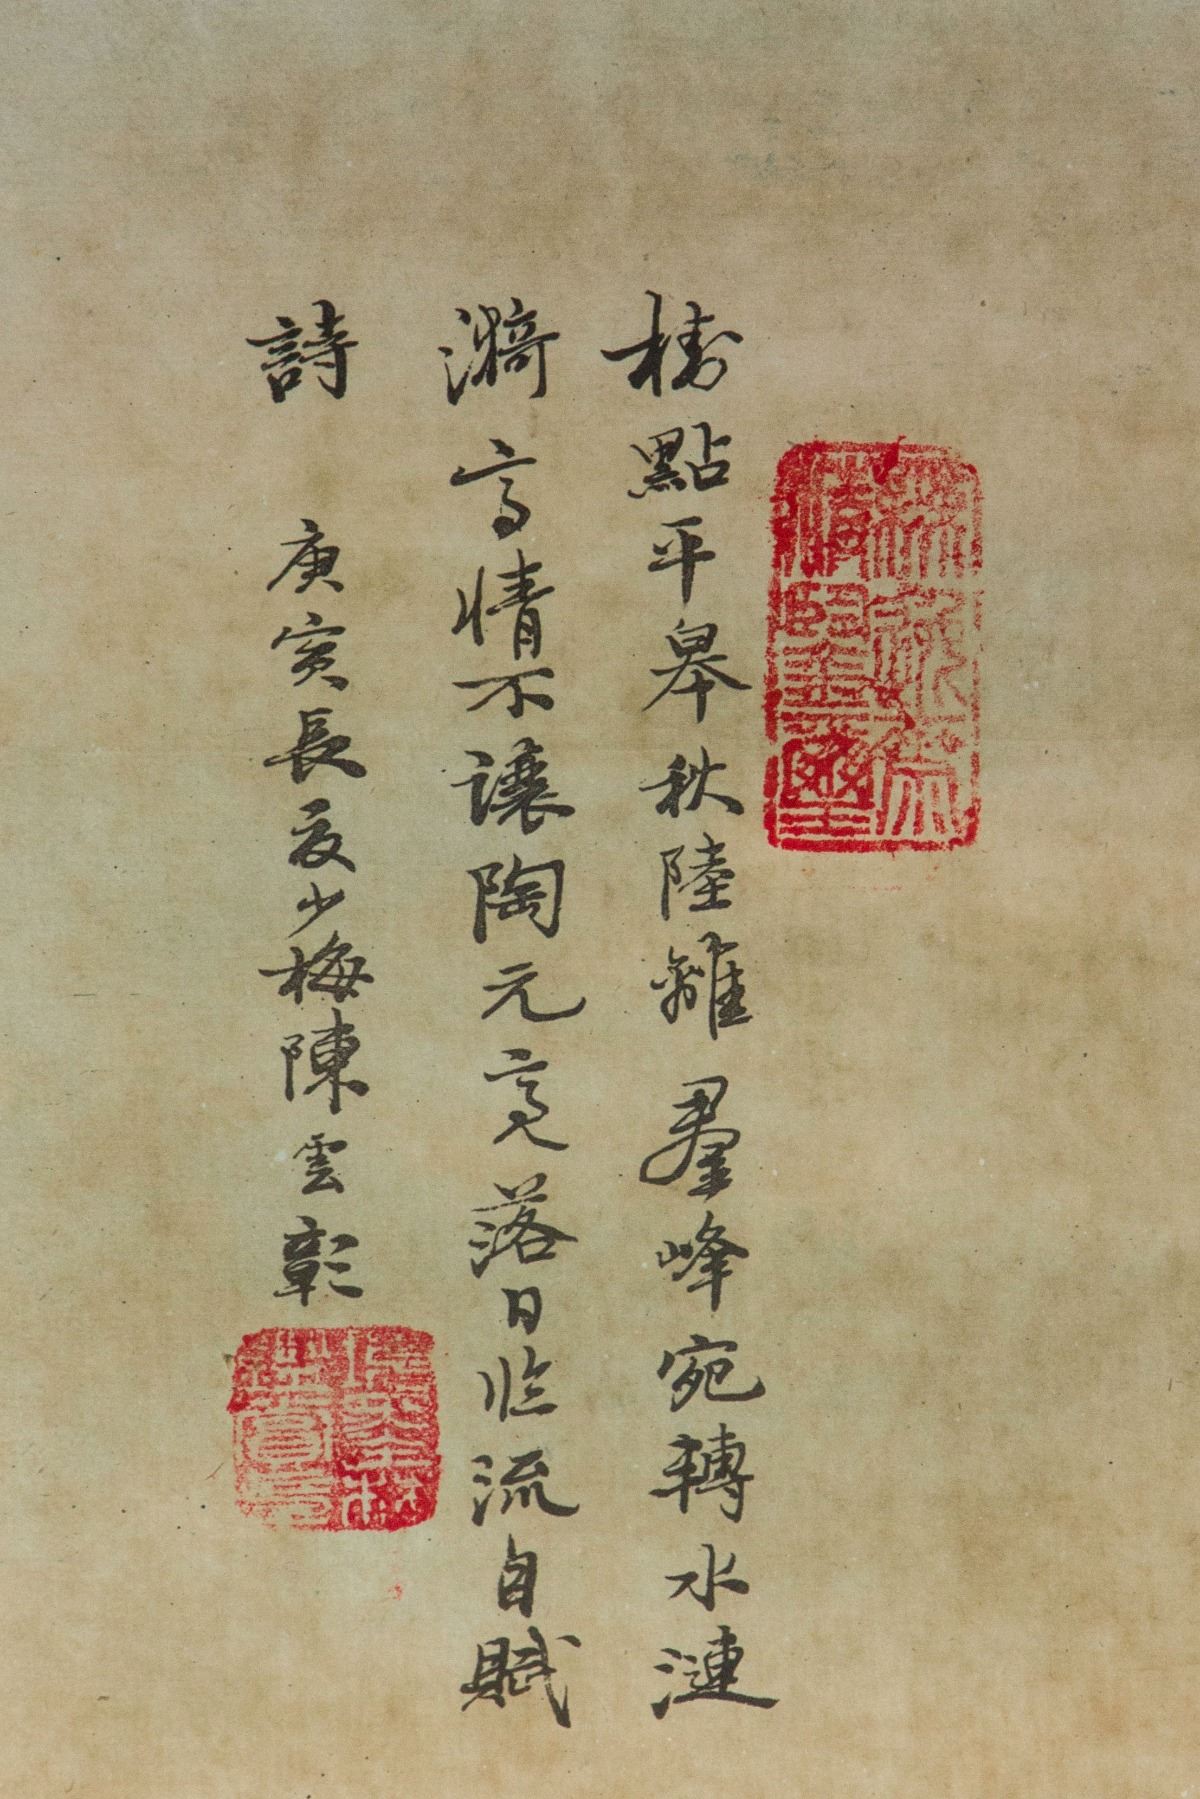 樹點平皋秋陸離羣峰宛轉水漣
漪高情不讓陶元亮落日臨流自賦
詩 庚寅長夏少梅陳雲彰